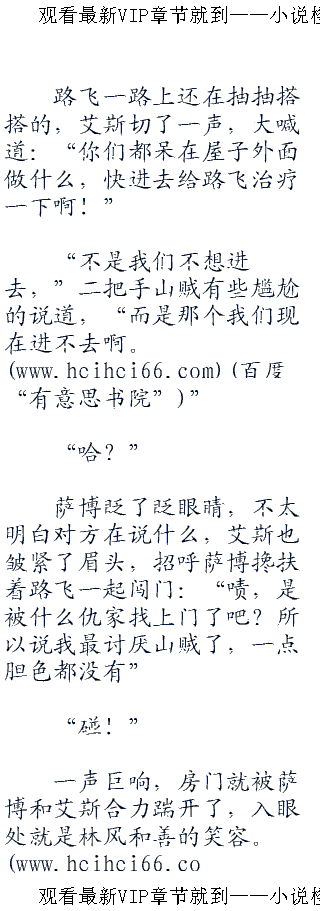 观看最新VIP章节就到——小说
路飞一路上还在抽抽搭
搭的，艾斯切了一声，大喊
道：“你们都呆在屋子外面
做什么，快进去给路飞治疗
一下啊！”
“不是我们不想进
去，”二把手山贼有些尴尬
的说道，“而是那个我们现
在进不去啊。
(www.hcihci66.com)(百度
“有意思书院”)”
“哈？”
萨博眨了眨眼睛，不太
明白对方在说什么，艾斯也
皱紧了眉头，招呼萨博搀扶
着路飞一起闯门：“啧，是
被什么仇家找上门了吧？所
以说我最讨厌山贼了，一点
胆色都没有”
“碰！”
一声巨响，房门就被萨
博和艾斯合力踹开了，入眼
处就是林风和善的笑容。
(www.hcihci66.co
观看最新VIP章节就到——小说